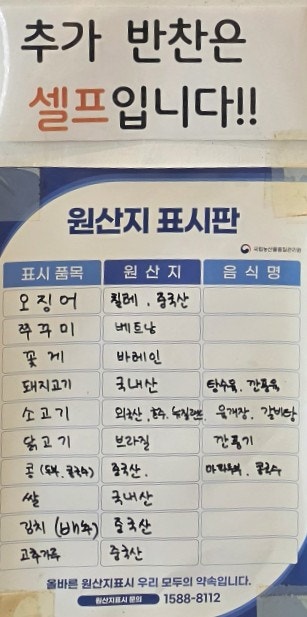 추가 반찬은
셀프입니다!!
원산지 표시판
국립농산물품질관리원
표시 품목 원 산 지 음 식 명
오징어 칠레, 중국산
쭈꾸미 베트남
꽃게 바레인
돼지고기 국내산 탕수육, 깐풍육
소고기 외국산, 호주, 뉴질랜드 육개장, 갈비탕
닭고기 브라질 깐풍기
콩(두부, 콩국수) 중국산. 마파두부, 콩국수
쌀 국내산
김치 (배추) 중국산
고추가루 중국산
올바른 원산지표시 우리 모두의 약속입니다.
원산지표시 문의 1588-8112